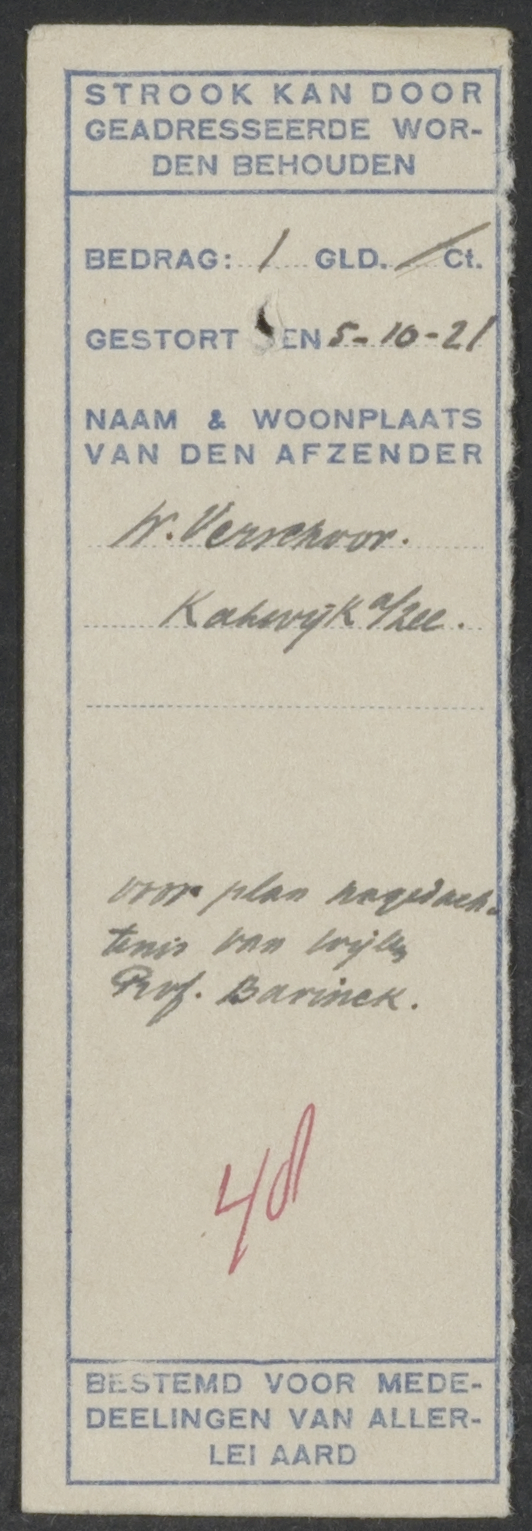 STROOK KAN DOOR
GEADRESSEERDE WOR-
DEN BEHOUDEN
BEDRAG: 1 GLD. / Ct.
GESTORT EN 5-10-21
NAAM & WOONPLAATS
VAN DEN AFZENDER
W. Verschoor.
Katwijk a/zee.
voor plan nagedach-
tenis van wijlen
Prof. Bavinck.
48
BESTEMD VOOR MEDE-
DEELINGEN VAN ALLER-
LEI AARD